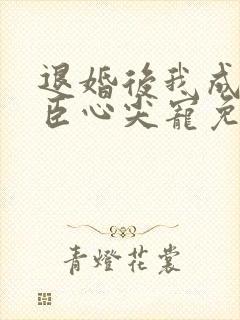 退婚後我成
臣心尖寵免
青燈花裳